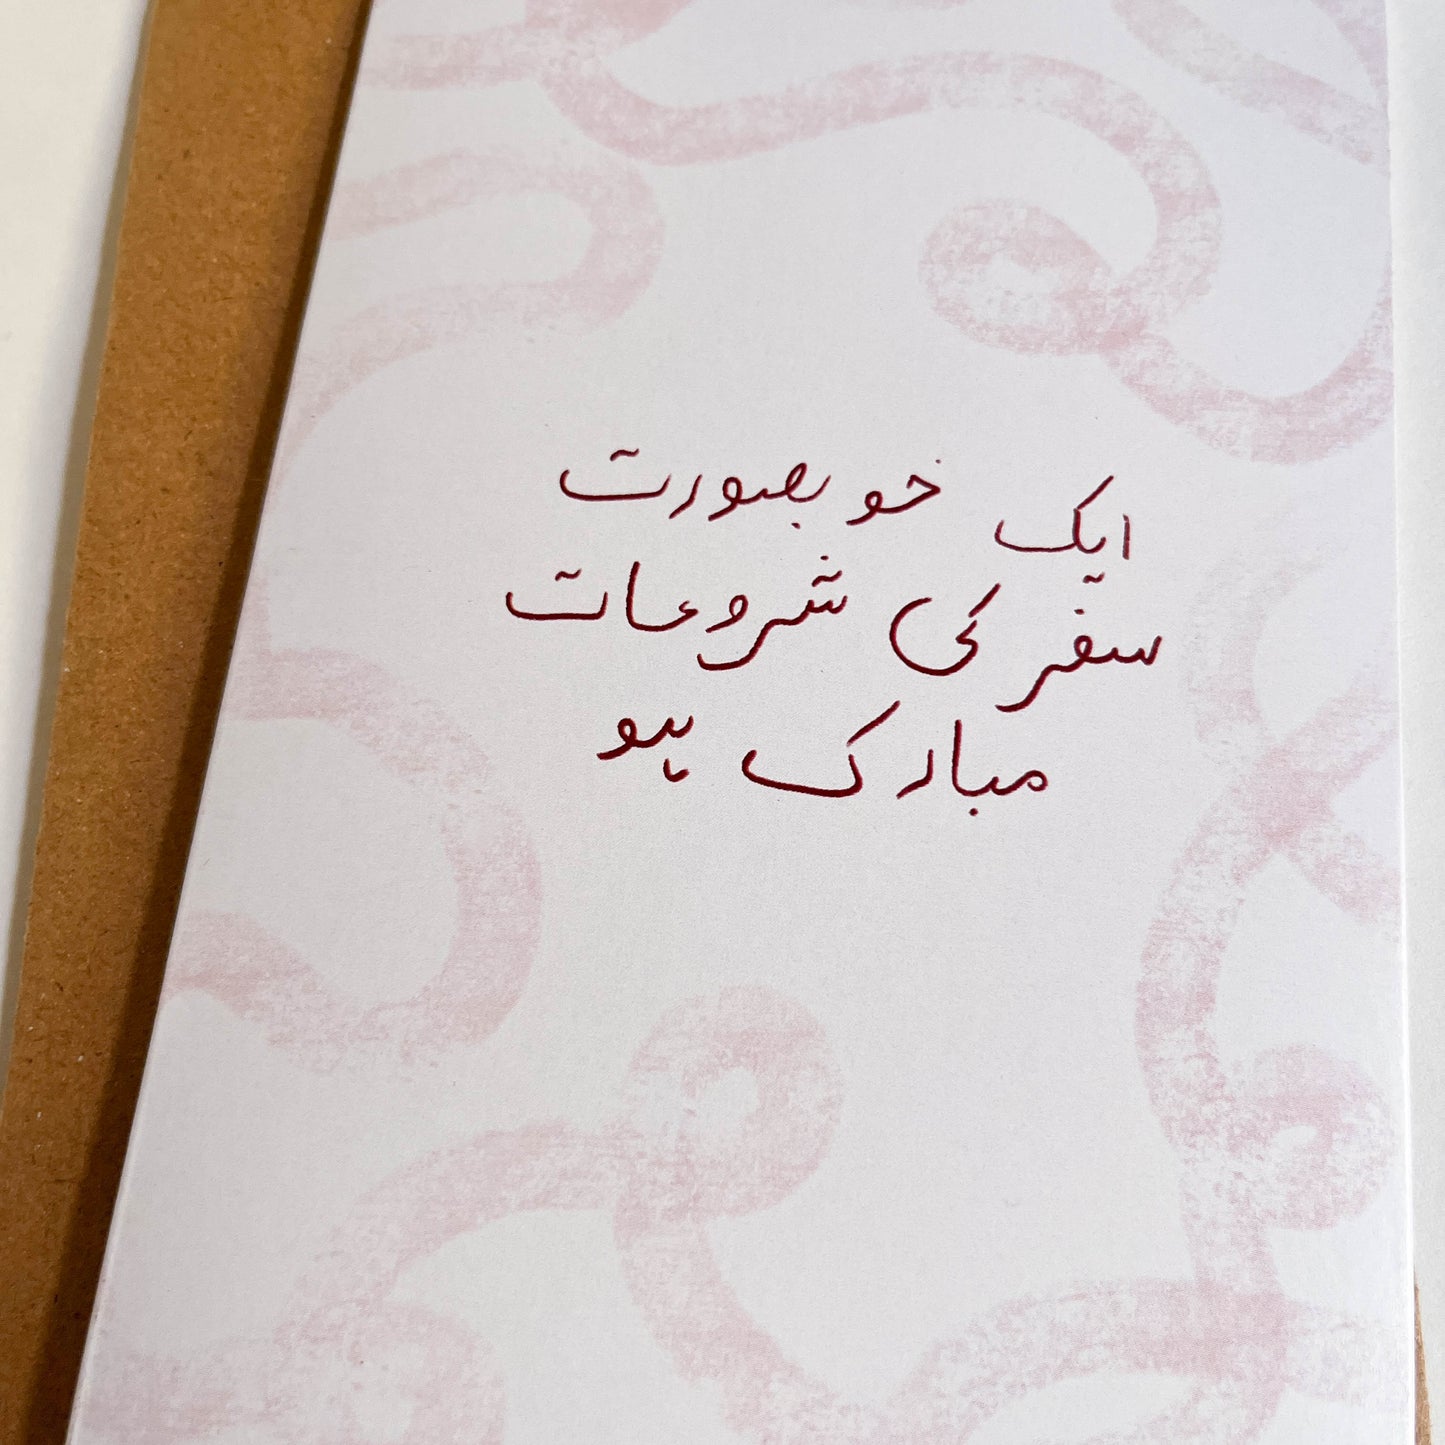 ایک خوبصورت
سفر کی شروعات
مبارک ہو